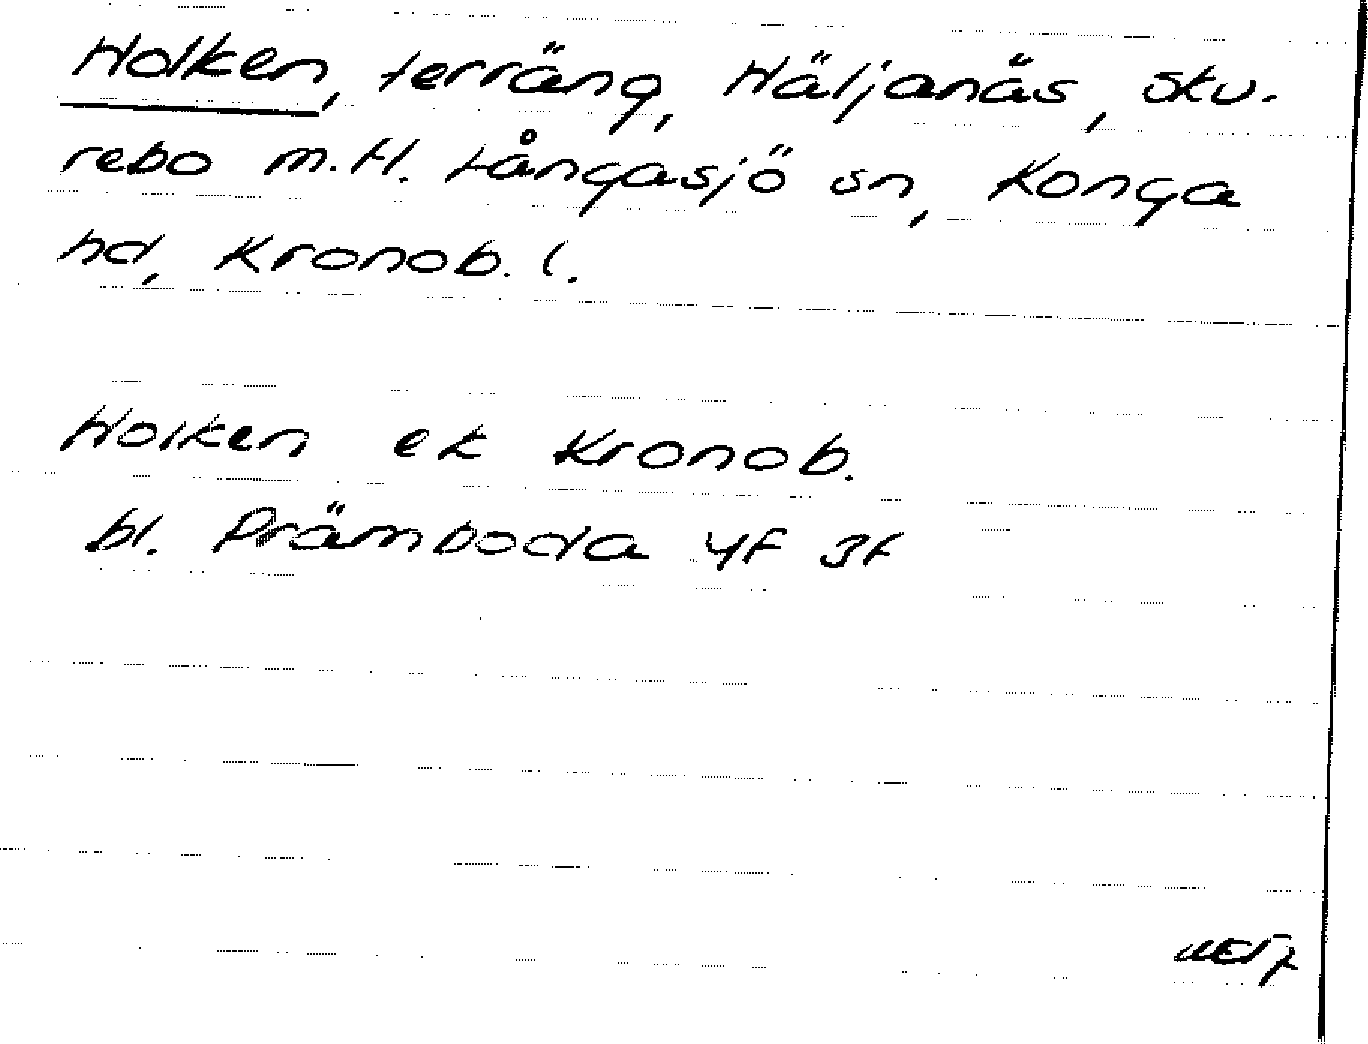 Holken, terräng, Häljanäs, Sku-
rebo m.fl. Långasjö sn, Konga
hd, Kronob. l.
Holken ek Kronob.
bl. Främboda 4F 3f